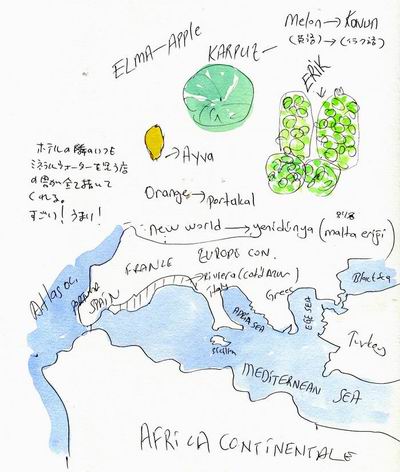 Melon → Kavun
(英語) → (トルコ語)
ELMA - Apple
KARPUZ -
ERIK
→ Ayva
ホテルの隣のいつも
ミネラルウォーターを買う店
の男が全て描いて
くれる。
すごい! うまい!
Orange → Portakal
new world → yenidünya (malta eriği)
EUROPE CON.
FRANCE
Riviera
SPAIN
Italy
ADRIA SEA
Gres
EGE SEA
Black sea
Turkey
Sicilia
MEDITERNEAN SEA
AFRICA CONTINENTALE